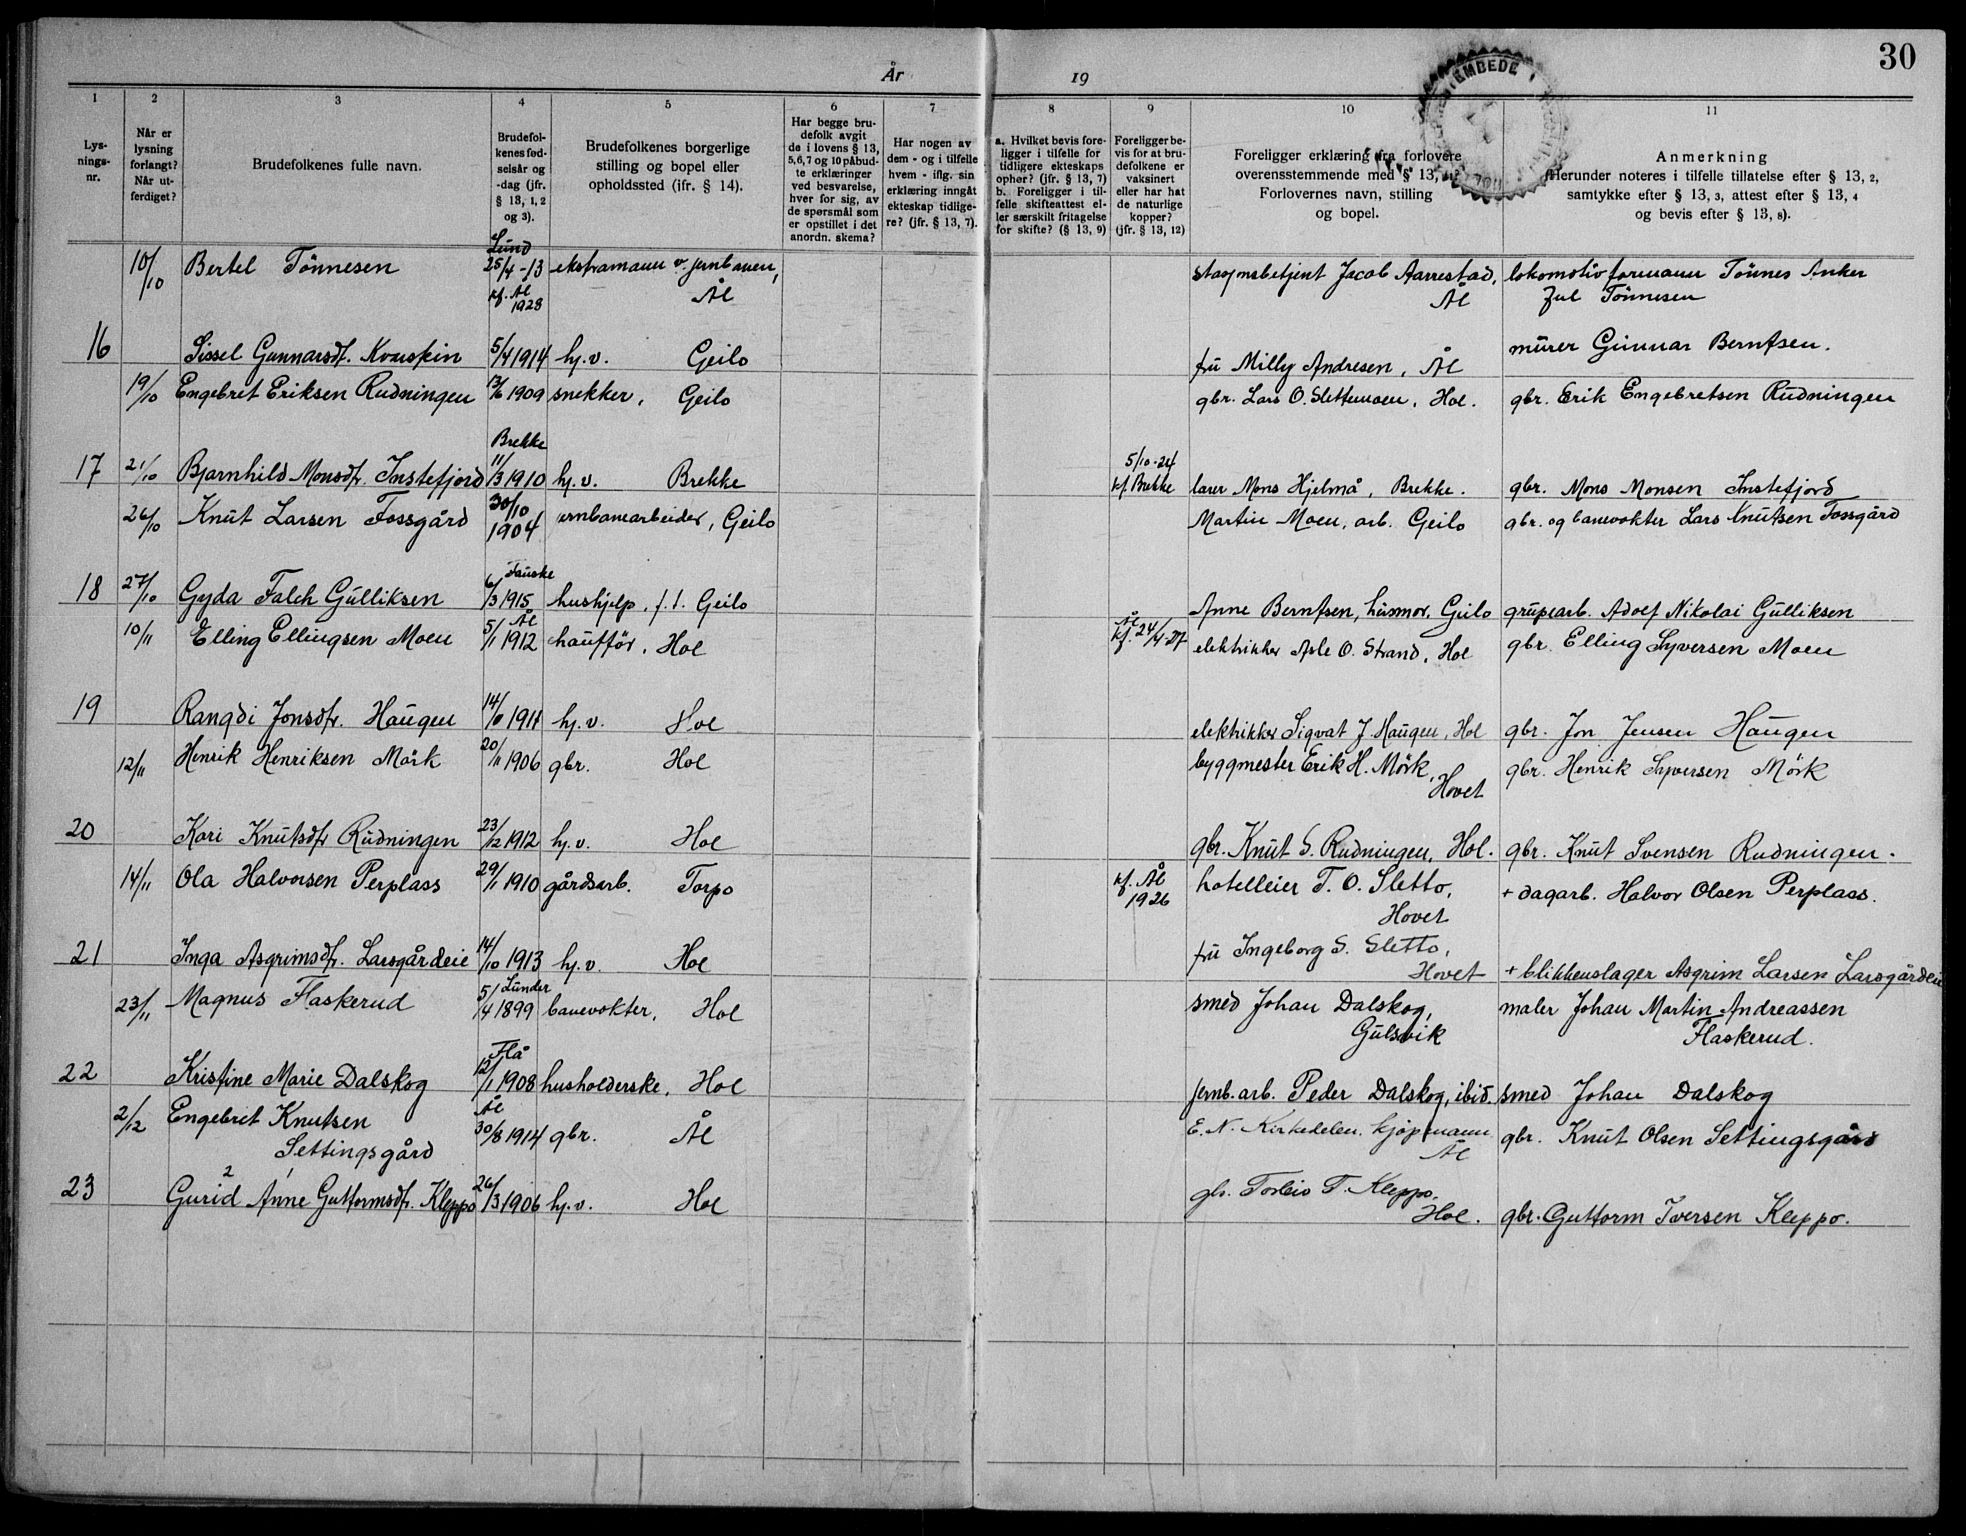 30
År 19
1 2 3 4 5 6 7 8 9 10 11
Lys-
nings-
nr.
Når er
lysning
forlangt?
Når ut-
ferdiget?
Brudefolkenes fulle navn.
Brudefol-
kenes fød-
selsår og
-dag (jfr.
§ 13, 1, 2
og 3).
Brudefolkenes borgerlige
stilling og bopel eller
opholdssted (ifr. § 14).
Har begge bru-
defolk avgit
de i lovens § 13,
5, 6, 7 og 10 påbud-
te erklæringer
ved besvarelse,
hver for sig, av
de spørsmål som
er opstillet i det
anordn. skema?
Har nogen av
dem - og i tilfelle
hvem - iflg. sin
erklæring inngått
ekteskap tidlige-
re? (jfr. § 13, 7).
a. Hvilket bevis fore-
ligger i tilfelle for
tidligere ekteskaps
ophør? (jfr. § 13, 7)
b. Foreligger i til-
felle skifteattest el-
ler særskilt fritagelse
for skifte? (§ 13, 9)
Foreligger be-
vis for at bru-
defolkene er
vaksinert
eller har hat
de naturlige
kopper?
(jfr. § 13, 12)
Foreligger erklæring fra forlovere
overensstemmende med § 13, 11?
Forlovernes navn, stilling
og bopel.
EMBEDE
Anmerkning
(Herunder noteres i tilfelle tillatelse efter § 13, 2,
samtykke efter § 13, 3, attest efter § 13, 4
og bevis efter § 13, 8).
Lund
10/10 Bertel Tönnesen 25/4-13 ekstramann v. jernbanen, stasjonsbetjent Jacob Aarrestad, lokomotivformann Tönnes Anker
kf. Ål 1928 Ål Ål Jul Tönnesen
16 Sissel Gunnarsdt. Kvuspin 5/4 1914 hj.v. Geilo frü Milly Andresen, Ål mürer Günnar Berntsen.
19/10 Engebret Eriksen Rudningen 13/6 1909 snekker, Geilo gbr. Lars O. Slettemoen, Hol. gbr. Erik Engebretsen Rüdningen
Brekke 5/10-24
17 21/10 Bjarnhild Monsdtr. Instefjord 11/3 1910 hj.v. Brekke kf. Brekke lærer Mons Hjelmå, Brekke. gbr. Mons Monsen Instefjord
26/10 Knüt Larsen Fossgård 30/10 1904 jernbanearbeider, Geilo Martin Moen, arb. Geilo gbr. og banevokter Lars Knütsen Fossgård
Fauske
18 27/10 Gyda Falch Gülliksen 6/3 1915 hushjelp, f.t. Geilo Anne Berntsen, hüsmor, Geilo grübearb. Adolf Nikolai Gülliksen
10/11 Elling Ellingsen Moen 5/1 Ål 1912 chaufför, Hol Ål kf. 24/4-27 elektrikker Asle O. Strand, Hol gbr. Elling Syversen Moen
19 Rangdi Jonsdtr. Haügen 14/10 1911 hj.v. Hol elektrikker Sigvat J Haügen, Hol gbr. Jon Jensen Haügen
12/11 Henrik Henriksen Mörk 20/11 1906 gbr. Hol byggmester Erik H. Mörk, gbr. Henrik Syversen Mörk
Hovet
20 Kari Knütsdtr Rüdningen 23/12 1912 hj.v. Hol gbr. Knüt S. Rudningen, Hol. gbr. Knüt Svensen Rudningen.
14/11 Ola Halvorsen Perplass 29/1 1910 gårdsarb. Torpo kf. Ål 1926 hotelleier T. O. Sletto, + dagarb. Halvor Olsen Perplass.
Hovet
21 Inga Asgrimsdt. Larsgårdeie 14/10 1913 hj.v. Hol frü Ingeborg S. Sletto,
Hovet + blikkenslager Asgrim Larsen Larsgårdeie
Lunder
23/11 Magnus Flaskerud 5/4 1899 banevokter, Hol smed Johan Dalskog, maler Johan Martin Andreassen
Gülsvik Flaskerud.
Flå
22 Kristine Marie Dalskog 12/1 1908 husholderske, Hol jernb.arb. Peder Dalskog, ibid. smed Johan Dalskog
2/12 Engebret Knutsen Ål 30/8 1914 gbr. Ål E. N. Kirkedelen, kjøpmann gbr. Knüt Olsen Settingsgård
Settingsgård Ål
2 1
23 Gurid Anne Guttormsdtr. Kleppo 26/3 1906 hj.v. Hol gbr. Torleiv T. Kleppo,
Hol. gbr. Guttorm Iversen Kleppo.